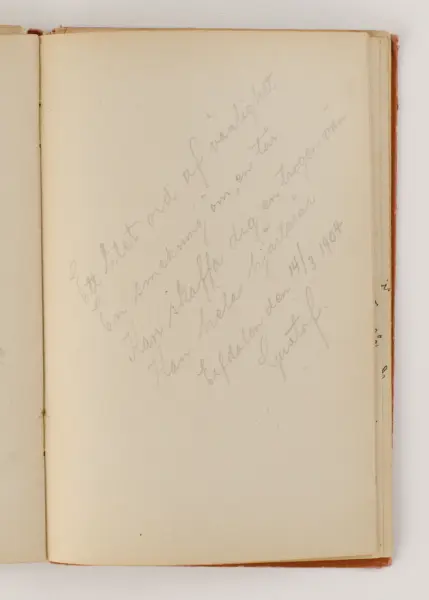 Ett litet ord af vänlighet
En smekning om en tår
Kan skaffa dig en trogen vän
Kan hela hjärtesår
Elfdalen den 14/3 1904
Gustaf.